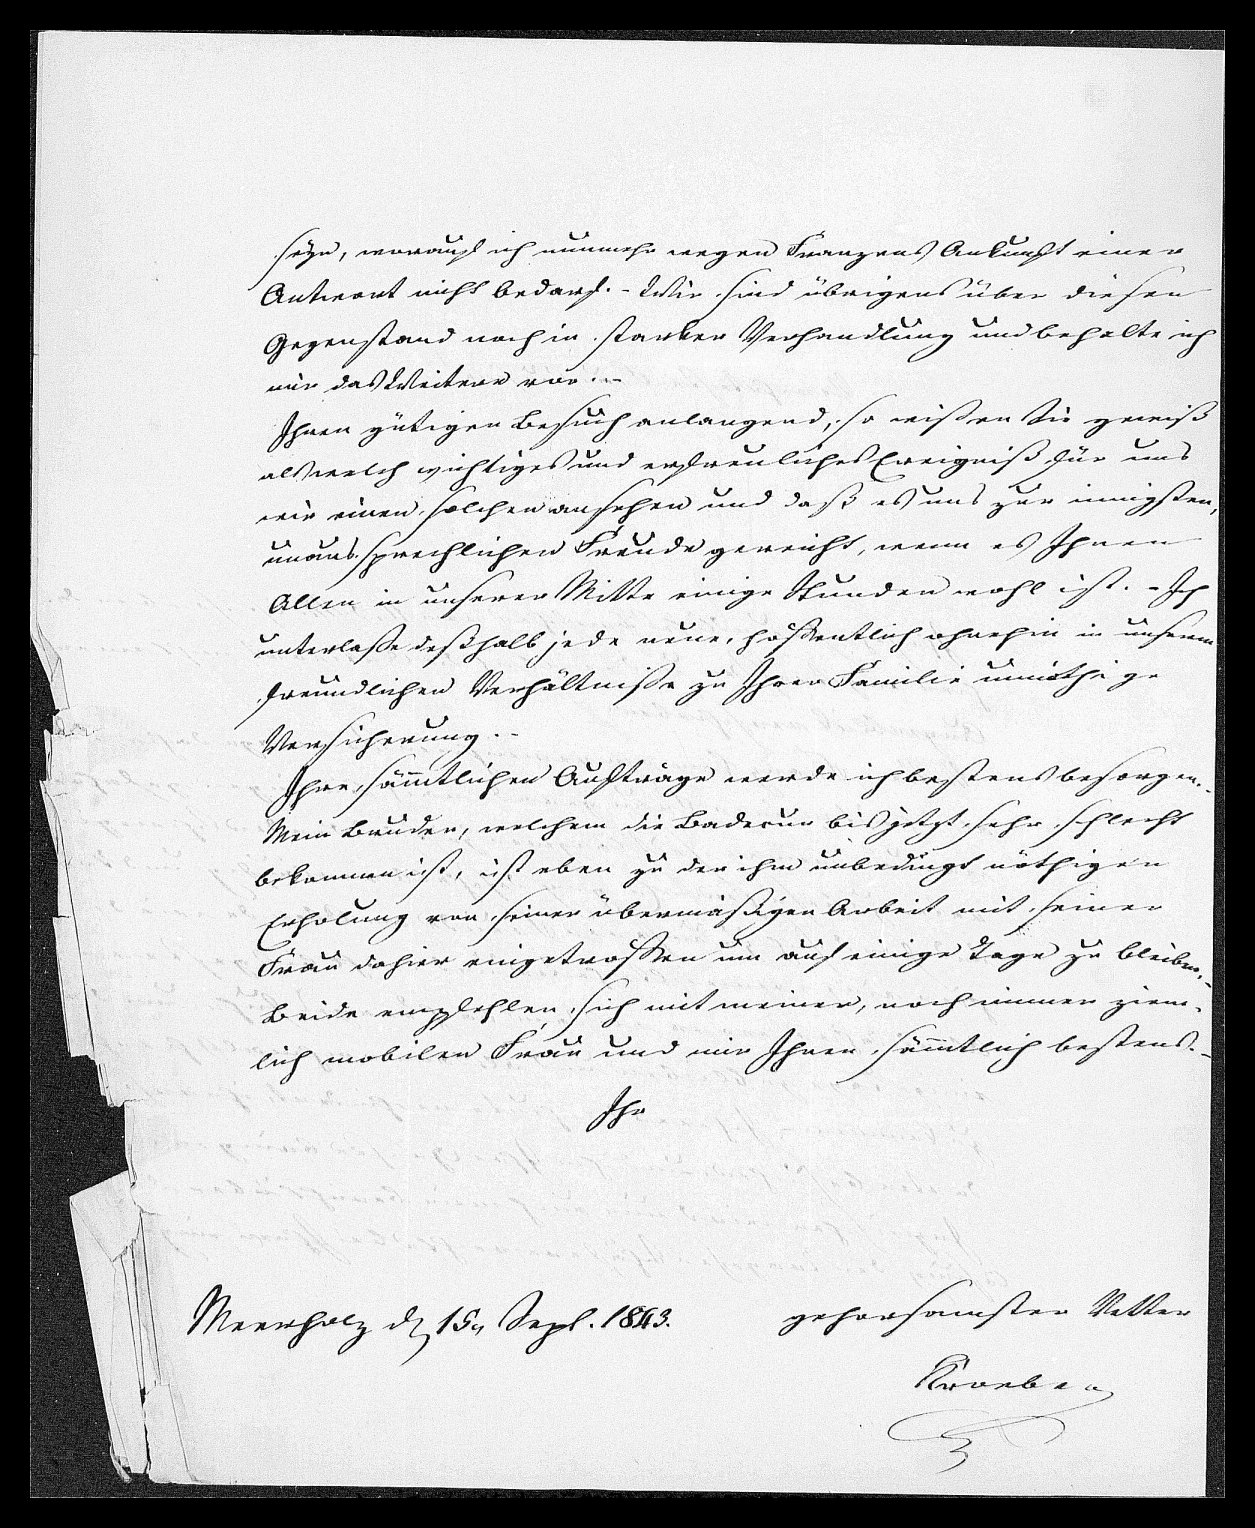 seyn, worauf ich nunmehr wegen Franzens Ankunft einer
Antwort nicht bedarf. - Wir sind übrigens über diesen
Gegenstand noch in starker Verhandlung und behalte ich
mir das Weitere vor. -
Ihren gütigen Besuch anlangend, so wißen Sie gewiß
als welch wichtiges und erfreuliches Ereigniß für uns
wir einen solchen ansehen und daß es uns zur innigsten,
unaussprechlichen Freude gereicht, wenn es Ihnen
Allen in unserer Mitte einige Stunden wohl ist. - Ich
unterlaße deßhalb jede neue, hoffentlich ohnehin in unserm
freundlichen Verhältniße zu Ihrer Familie unnöthige
Versicherung. -
Ihre sämtlichen Aufträge werde ich bestens besorgen. -
Mein Bruder, welchem die Badecur bis jetzt sehr schlecht
bekommen ist, ist eben zu der ihm unbedingt nöthigen
Erholung von seiner übermäßigen Arbeit mit seiner
Frau dahier eingetroffen um auf einige Tage zu bleiben. -
Beide empfehlen sich mit meiner, noch immer ziem-
lich mobilen Frau und mir Ihnen sämtlich bestens. -
Ihr
Meerholz d 15 Sept. 1843.
gehorsamster Vetter
Kroeber